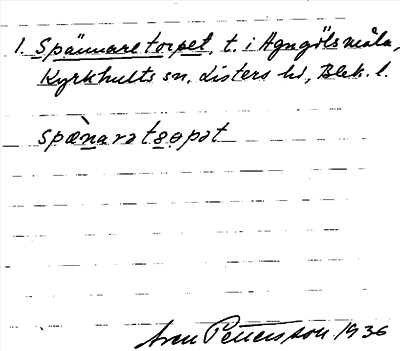 1. Spännaretorpet, t. i Agngölsmåla,
Kyrkhults sn, Listers hd, Blek. l.
spæ̀narətɵpət
Sven Pettersson 1936